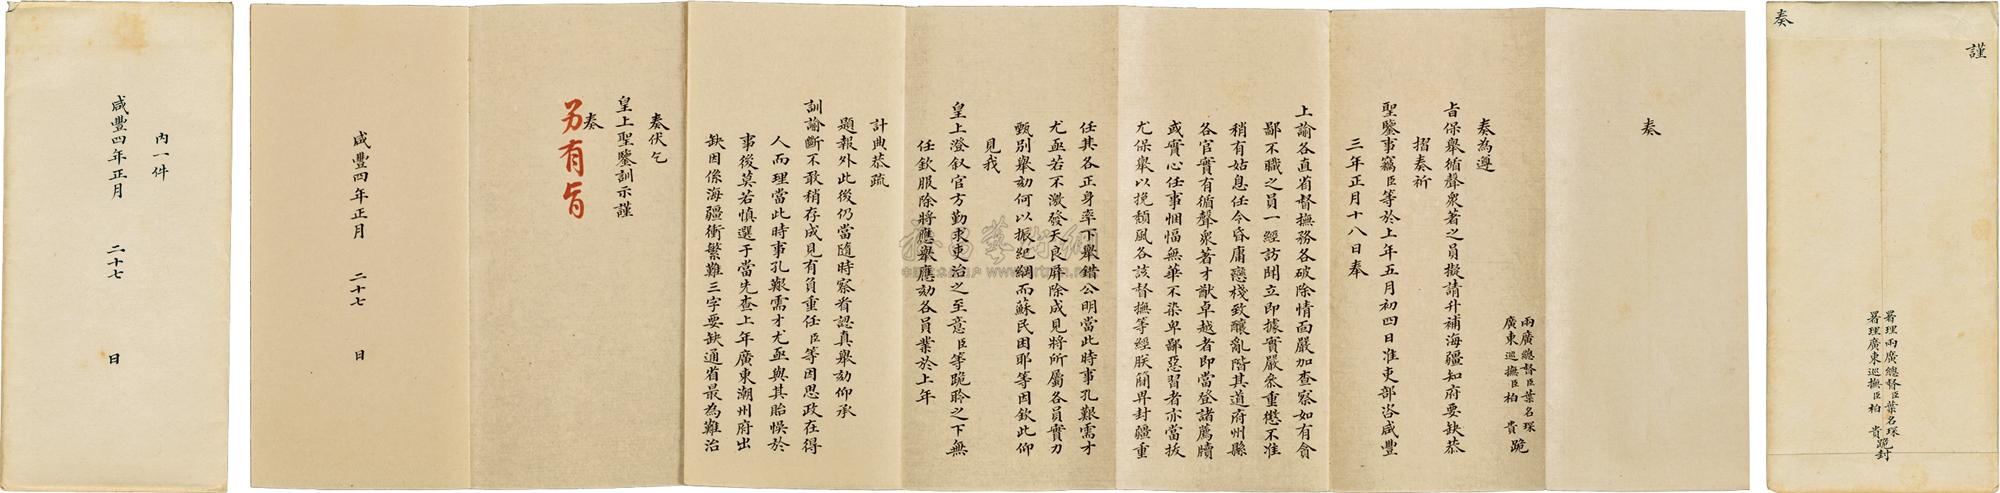 謹
奏
署理兩廣總督臣葉名琛
署理廣東巡撫臣柏貴跪封
奏
兩廣總督臣葉名琛
廣東巡撫臣柏貴跪
奏為遵
旨保舉循聲衆著之員擬請升補海疆知府要缺恭
摺奏祈
聖鑒事竊臣等於上年五月初四日准吏部咨咸豐
三年正月十八日奉
上諭各直省督撫務各破除情面嚴加查察如有貪
鄙不職之員一經訪聞立即據實嚴叅重懲不准
稍有姑息任令昏庸戀棧致釀亂階其道府州縣
各官實有循聲衆著才猷卓越者即當登諸薦牘
或實心任事悃愊無華不染卑鄙惡習者亦當拔
尤保舉以挽頹風各該督撫等經朕簡畀封疆重
任其各正身率下舉錯公明當此時事孔艱需才
尤亟若不激發天良屏除成見將所屬各員實力
甄別舉劾何以振紀綱而蘇民困耶等因欽此仰
見我
皇上澄叙官方勤求吏治之至意臣等跪聆之下無
任欽服除將應舉應劾各員業於上年
計典恭疏
題報外此後仍當隨時察看認真舉劾仰承
訓諭斷不敢稍存成見有員重任臣等因思政在得
人而理當此時事孔艱需才尤亟與其貽悞於
事後莫若慎選于當先查上年廣東潮州府出
缺因係海疆衝繁難三字要缺通省最為難治
奏伏乞
皇上聖鑒訓示謹
奏
另有旨
咸豐四年正月 二十七 日
內一件
咸豐四年正月 二十七 日